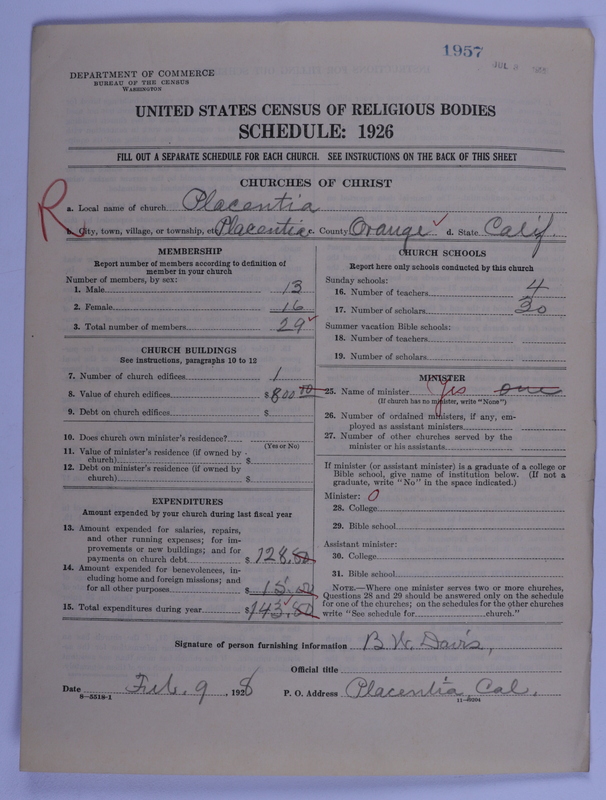 1957
JUL
DEPARTMENT OF COMMERCE
BUREAU OF THE CENSUS
WASHINGTON
UNITED STATES CENSUS OF RELIGIOUS BODIES
SCHEDULE: 1926
FILL OUT A SEPARATE SCHEDULE FOR EACH CHURCH. SEE INSTRUCTIONS ON THE BACK OF THIS SHEET
CHURCHES OF CHRIST
R
a. Local name of church Placentia
b. City, town, village, or township, etc. Placentia c. County Orange d. State Calif
MEMBERSHIP
Report number of members according to definition of
member in your church
Number of members, by sex:
1. Male 13
2. Female 16
3. Total number of members 29
CHURCH BUILDINGS
See instructions, paragraphs 10 to 12
7. Number of church edifices 1
8. Value of church edifices $800 00
9. Debt on church edifices $
10. Does church own minister's residence?
(Yes or No)
11. Value of minister's residence (if owned by
church) $
12. Debt on minister's residence (if owned by
church) $
EXPENDITURES
Amount expended by your church during last fiscal year
13. Amount expended for salaries, repairs,
and other running expenses; for im-
provements or new buildings; and for
payments on church debt $128.80
14. Amount expended for benevolences, in-
cluding home and foreign missions; and
for all other purposes $15.00
15. Total expenditures during year $143.80
CHURCH SCHOOLS
Report here only schools conducted by this church
Sunday schools:
16. Number of teachers 4
17. Number of scholars 30
Summer vacation Bible schools:
18. Number of teachers
19. Number of scholars
MINISTER
25. Name of minister Yes one
(If church has no minister, write "None")
26. Number of ordained ministers, if any, em-
ployed as assistant ministers
27. Number of other churches served by the
minister or his assistants
If minister (or assistant minister) is a graduate of a college or
Bible school, give name of institution below. (If not a
graduate, write "No" in the space indicated.)
Minister: 0
28. College
29. Bible school
Assistant minister:
30. College
31. Bible school
NOTE.—Where one minister serves two or more churches,
Questions 28 and 29 should be answered only on the schedule
for one of the churches; on the schedules for the other churches
write "See schedule for church."
Signature of person furnishing information B. W. Davis,
Official title
Date Feb. 9, 1928 P. O. Address Placentia, Cal.
8—5518-1